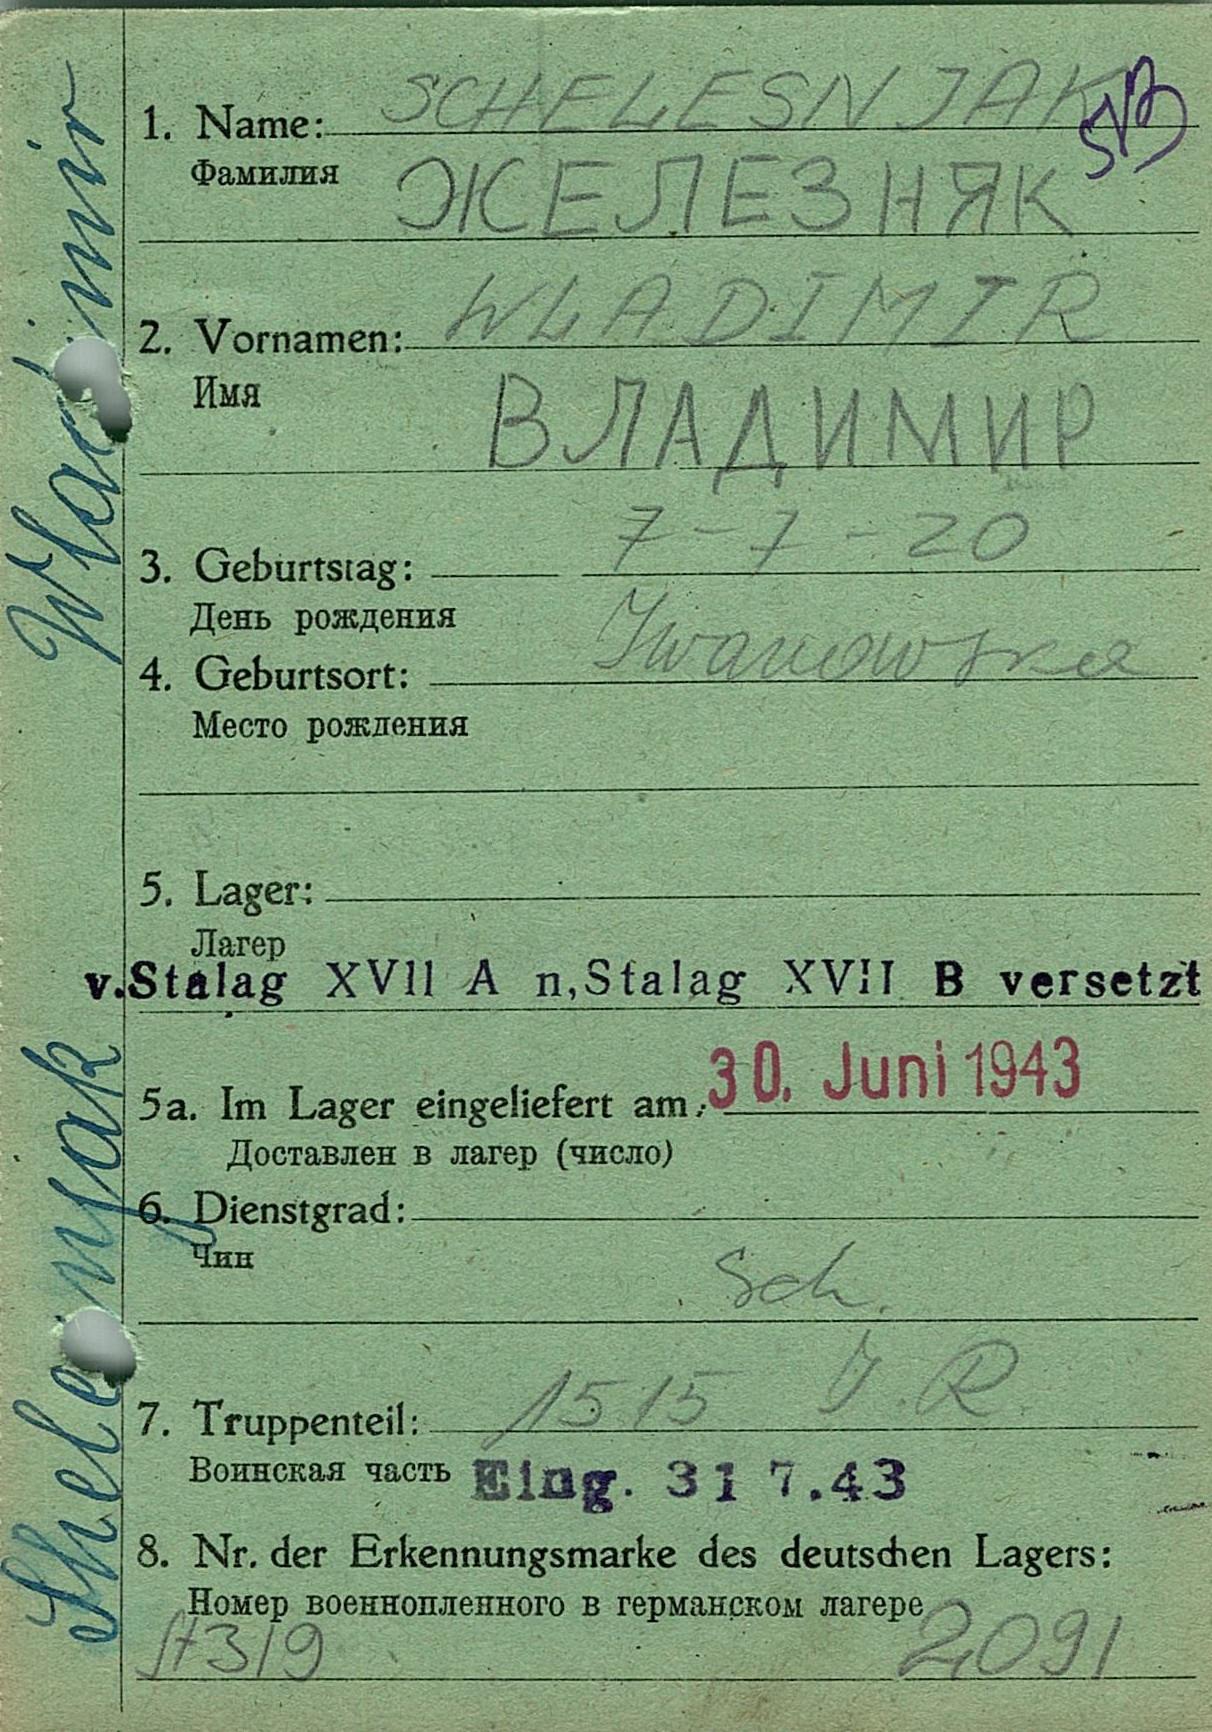 1. Name: SCHELESNJAK
Фамилия ЖЕЛЕЗНЯК
2. Vornamen: WLADIMIR
Имя ВЛАДИМИР
3. Geburtstag: 7-7-20
День рождения
4. Geburtsort: Iwanowska
Место рождения
5. Lager:
Лагер
v.Stalag XVII A n,Stalag XVII B versetzt
5a. Im Lager eingeliefert am: 30. Juni 1943
Доставлен в лагер (число)
6. Dienstgrad:
Чин
Sch.
7. Truppenteil: 1515 J.R.
Воинская часть Eing. 31 7.43
8. Nr. der Erkennungsmarke des deutschen Lagers:
Номер военнопленного в германском лагере
319 2091
Wladimir